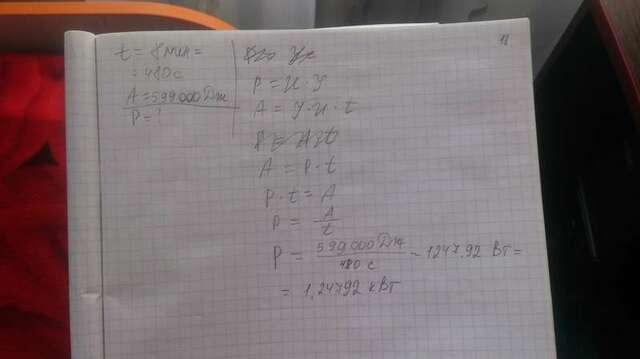 18
t = 8 мин =
= 480 с
A = 599 000 Дж
P = ?
P = U · I
A = I · U · t
A = P · t
P · t = A
P = A / t
P = 599 000 Дж / 480 с = 1247,92 Вт =
= 1,24792 кВт